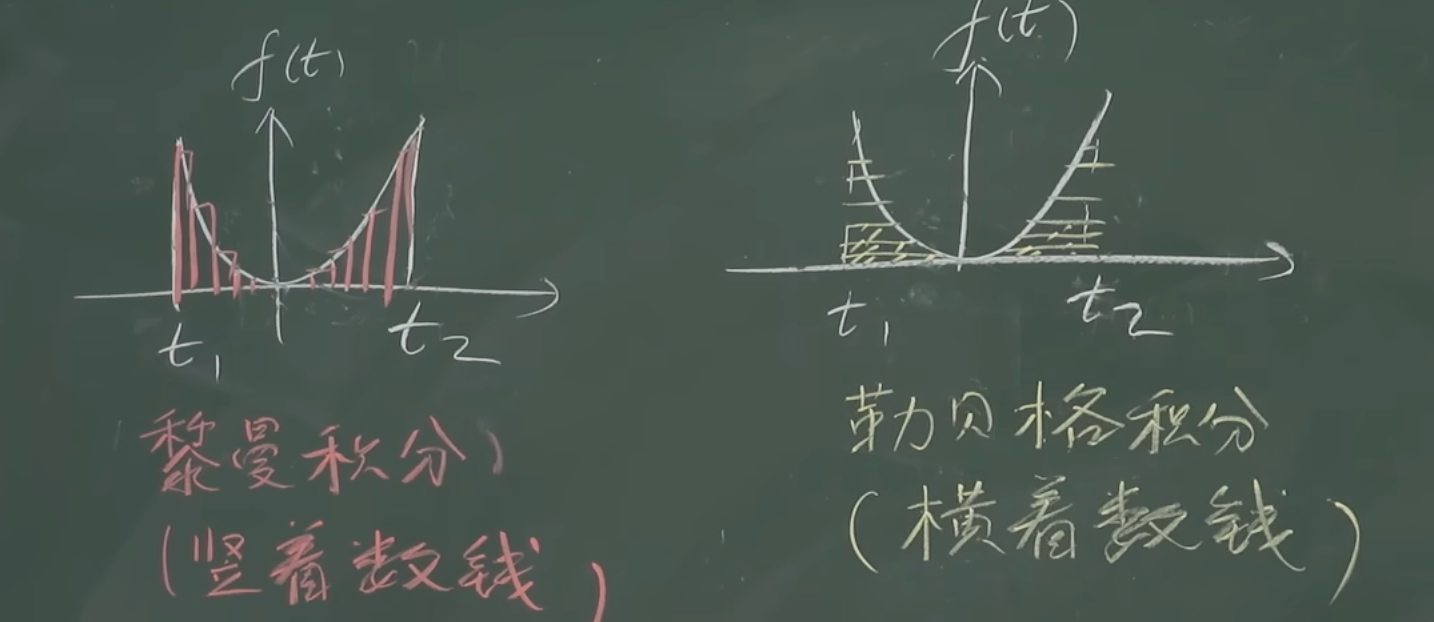 f(t)
t₁ t₂
黎曼积分
(竖着数钱)
f(t)
t₁ t₂
勒贝格积分
(横着数钱)